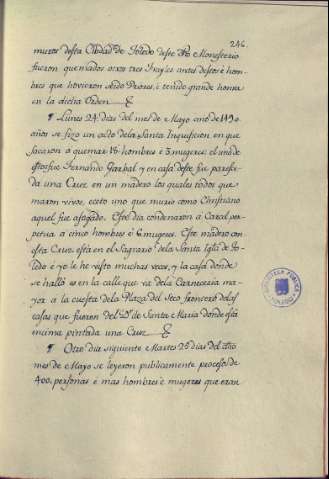 246.
muros desta Ciudad de Toledo deste dho Monesterio
fueron quemados otros tres frayles antes destos é hom-
bres que hovieron seido Priores, é tenido grande honra
en la dicha Orden
¶ Lunes 24. dias del mes de Mayo año de 1490
años se fizo un acto de la Santa Inquisicion en que
sacaron a quemar 18 hombres é 3 mugeres: el uno de
estos fue Fernando Garbal y en casa deste fue
da una Cruz en un madero los quales todos que
maron vivos, eceto uno que murio como Christiano
aquel fue afogado. Este dia condenaron a Carcel per-
petua a cinco hombres é 6 mugeres. Este madero con
esta Cruz está en el Sagrario de la Santa Igla de To-
ledo é yo le he visto muchas veces, y la casa donde
se halló es en la calle que va de la Carniceria ma-
yor a la cuesta de la Plaza del Seco frontero de las
casas que fueron del de Santa Maria donde está
encima pintada una Cruz.
¶ Otro dia siguiente Martes 25 dias del dho
mes de Mayo se leyeron publicamente procesos de
400. personas é mas hombres é mugeres que eran
BIBLIOTECA PUBLICA
TOLEDO